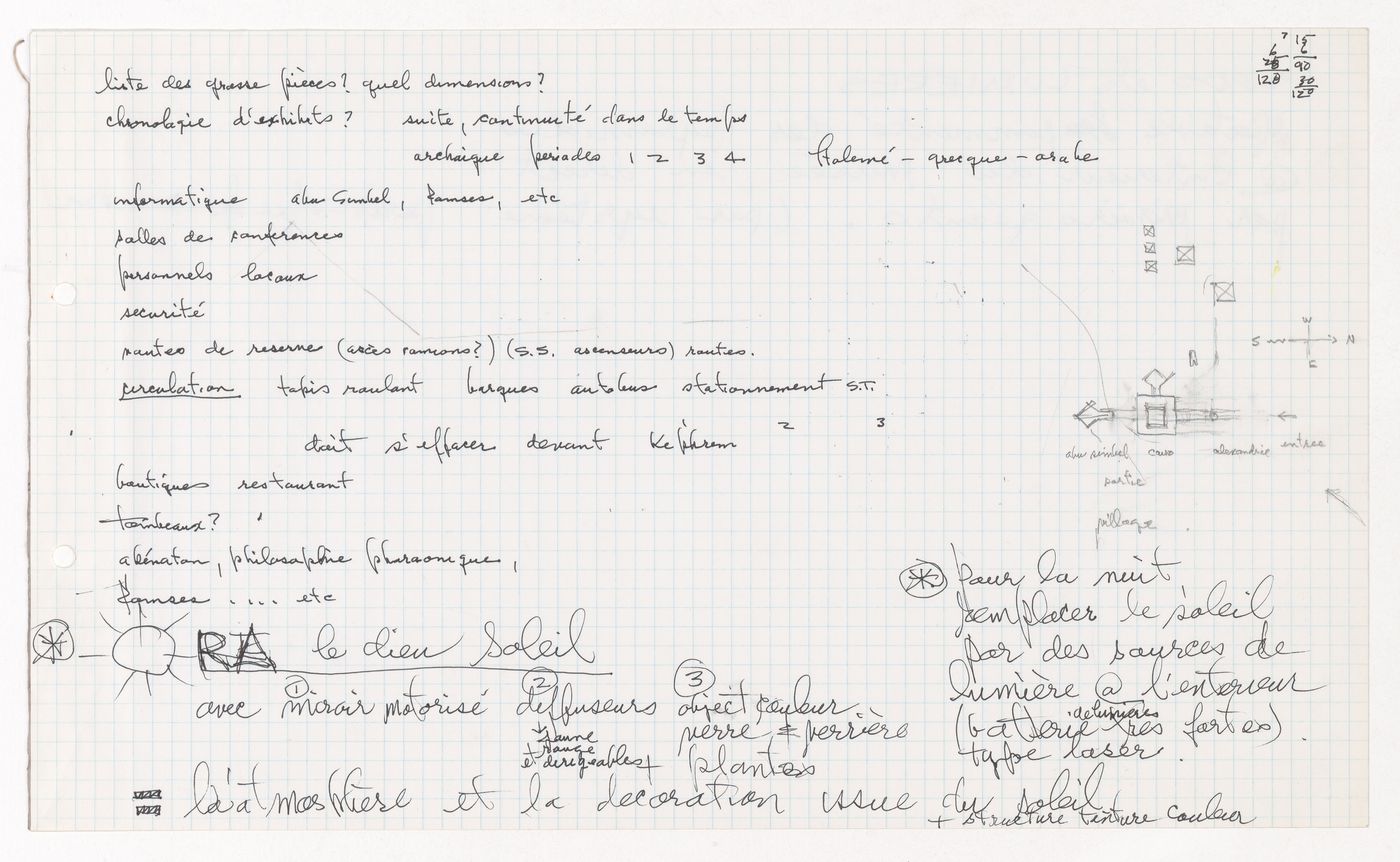 liste des grosse pièces? quel dimensions?
chronologie d'exhibits? suite, continuité dans le temps
archaique periodes 1 2 3 4 Ptolemé - grecque - arabe
informatique abu Simbel, Ramses, etc
salles de conferences
personnels locaux
securité
routes de reserve (accès camions?) (S.S. ascenseurs) routes.
circulation tapis roulant barques autobus stationnement S.T.
doit s'effacer devant Kephrem 2 3
boutiques restaurant
tombeaux?
akénaton, philosophie pharaonique,
Ramses .... etc
RA le dieu Soleil
avec ① miroir motorisé ② diffuseurs ③ object, couleur
jaune
rouge
et dirigeables +
verre & verrière
plantes
la'atmosphere et la decoration issue du soleil
+ structure teinture couleur
* Pour la nuit,
remplacer le soleil
par des sources de
lumière @ l'enterieur
(batterie de lumières très fortes)
type laser.
7 15
6 6
20 90
120 30
120
W
S N
E
abu simbel caire alexandrie entree
sortie
village